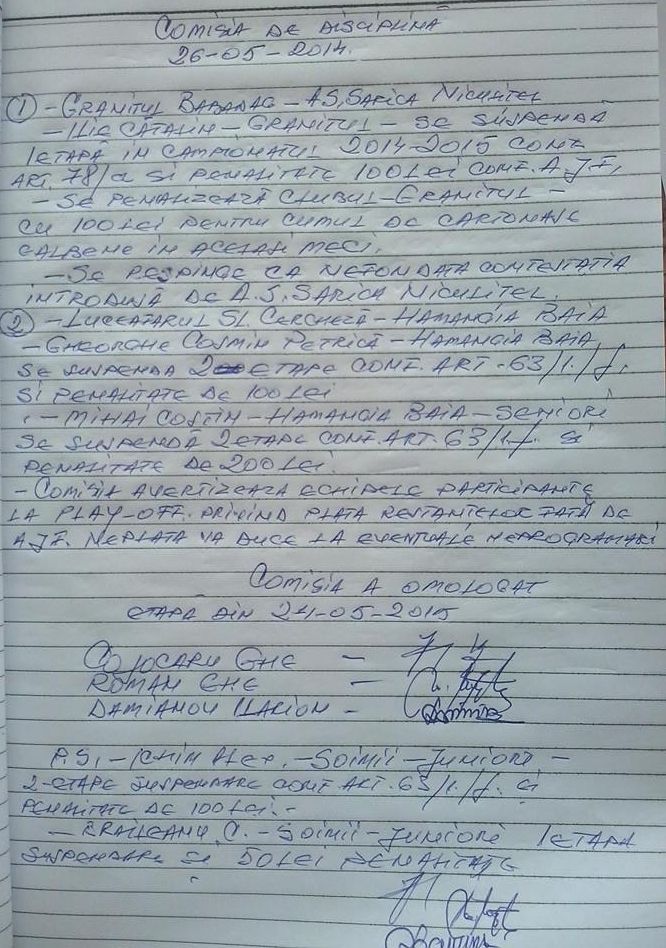 COMISIA DE DISCIPLINĂ
26-05-2014.
① - GRANITUL BABADAG - AS, SARICA NICULITEL
- ILIE CĂTALIN - GRANITUL - SE SUSPENDĂ
1 ETAPĂ IN CAMPIONATUL 2014-2015 CONF.
ART. 78/a SI PENALITATE 100 LEI CONF. A.J.F,
- SE PENALIZEAZĂ CLUBUL - GRANITUL -
CU 100 LEI PENTRU CUMUL DE CARTONASE
GALBENE IN ACELASI MECI.
- SE RESPINGE CA NEFONDATA CONTESTATIA
INTRODUSĂ DE A.S, SARICA NICULITEL.
② - LUCEAFARUL SL. CERCHEZĂ - HAMANGIA BAIA
- GHEORGHE COSMIN PETRICĂ - HAMANGIA BAIA,
SE SUSPENDA 2 ETAPE CONF. ART. 63/1./f.
SI PENALITATE DE 100 LEI
- MIHAI COSTIN - HAMANGIA BAIA - SENIORI
SE SUSPENDĂ 2 ETAPE CONF. ART. 63/1./f. SI
PENALITATE DE 200 LEI.
- COMISIA AVERTIZEAZA ECHIPELE PARTICIPANTE
LA PLAY-OFF. PRIVIND PLATA RESTANTELOR FATĂ DE
A.J.F. NEPLATA VA DUCE LA EVENTUALE NEPROGRAMĂRI
COMISIA A OMOLOGAT
ETAPA DIN 24-05-2015
COJOCARU GHE -
ROMAN GHE -
DAMIANOV ILARION -
P.S. - ICHIM ALEX. - SOIMII - JUNIORI -
2-ETAPE SUSPENDARE CONF ART. 63/1./f. SI
PENALITATE DE 100 LEI. -
- BRAILEANU C. - SOIMII - JUNIORI 1 ETAPA
SUSPENDARE SI 50 LEI PENALITATE